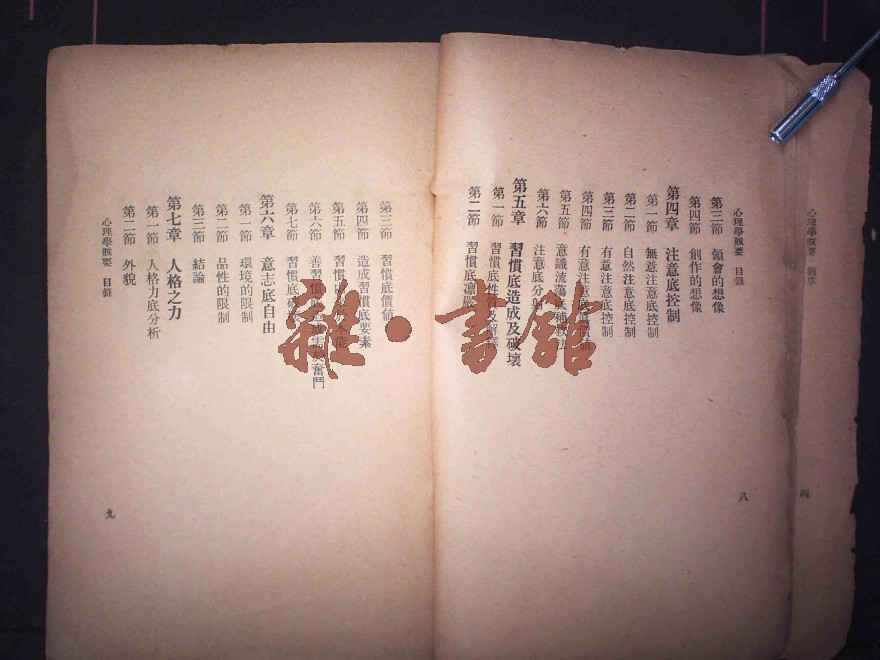 心理學賅要 劉序
四
心理學賅要 目錄
八
第三節 領會的想像
第四節 創作的想像
第四章 注意底控制
第一節 無意注意底控制
第二節 自然注意底控制
第三節 有意注意底控制
第四節 有意注意底
第五節 意識流蕩底補救法
第六節 注意底分
第五章 習慣底造成及破壞
第一節 習慣底性質及解釋
第二節 習慣底凛嚴
第三節 習慣底價値
第四節 造成習慣底要素
第五節 習慣
第六節 善習慣底造成需於奮鬥
第七節 習慣底破壞
第六章 意志底自由
第一節 環境的限制
第二節 品性的限制
第三節 結論
第七章 人格之力
第一節 人格力底分析
第二節 外貌
心理學賅要 目錄
九
雜·書館